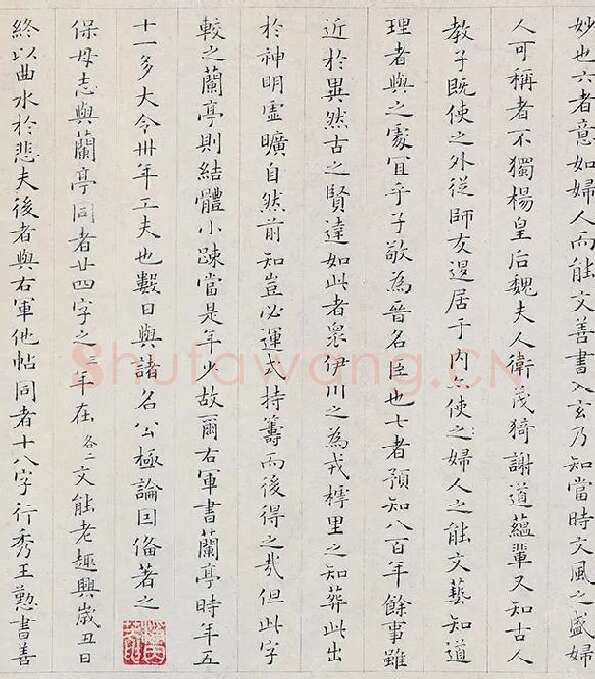 妙也六者意如婦人而能文善書入玄乃知當時文風之盛婦
人可稱者不獨楊皇后魏夫人衛茂猗謝道蘊輩又知古人
教子既使之外從師友退居于內亦使之婦人之能文藝知道
理者與之處冝乎子敬為晉名臣也七者預知八百年餘事雖
近於異然古之賢達如此者眾伊川之為戎樗里之知葬此出
於神明虛曠自然前知豈必運式持籌而後得之哉但此字
較之蘭亭則結體小踈當是年少故爾右軍書蘭亭時年五
十一多大令卅年工夫也數日與諸名公極論因俻著之
保母志與蘭亭同者廿四字之三年在各二文能老趣興歲丑日
終以曲水於悲夫後者與右軍他帖同者十八字行秀王懃書善
Shufawang.CN